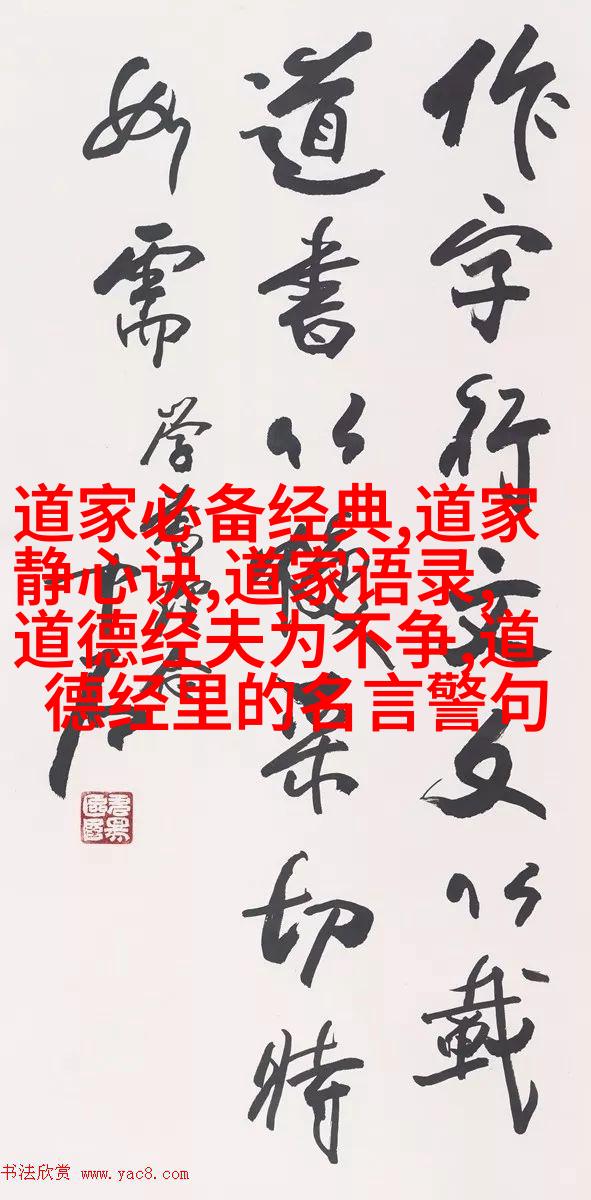 作字行文文以載
道書以采切時
如需
道家必备经典,道家
静心诀,道家语录,
道德经夫为不争,道
德经里的名言警句
书法欣赏 www.yac8.com